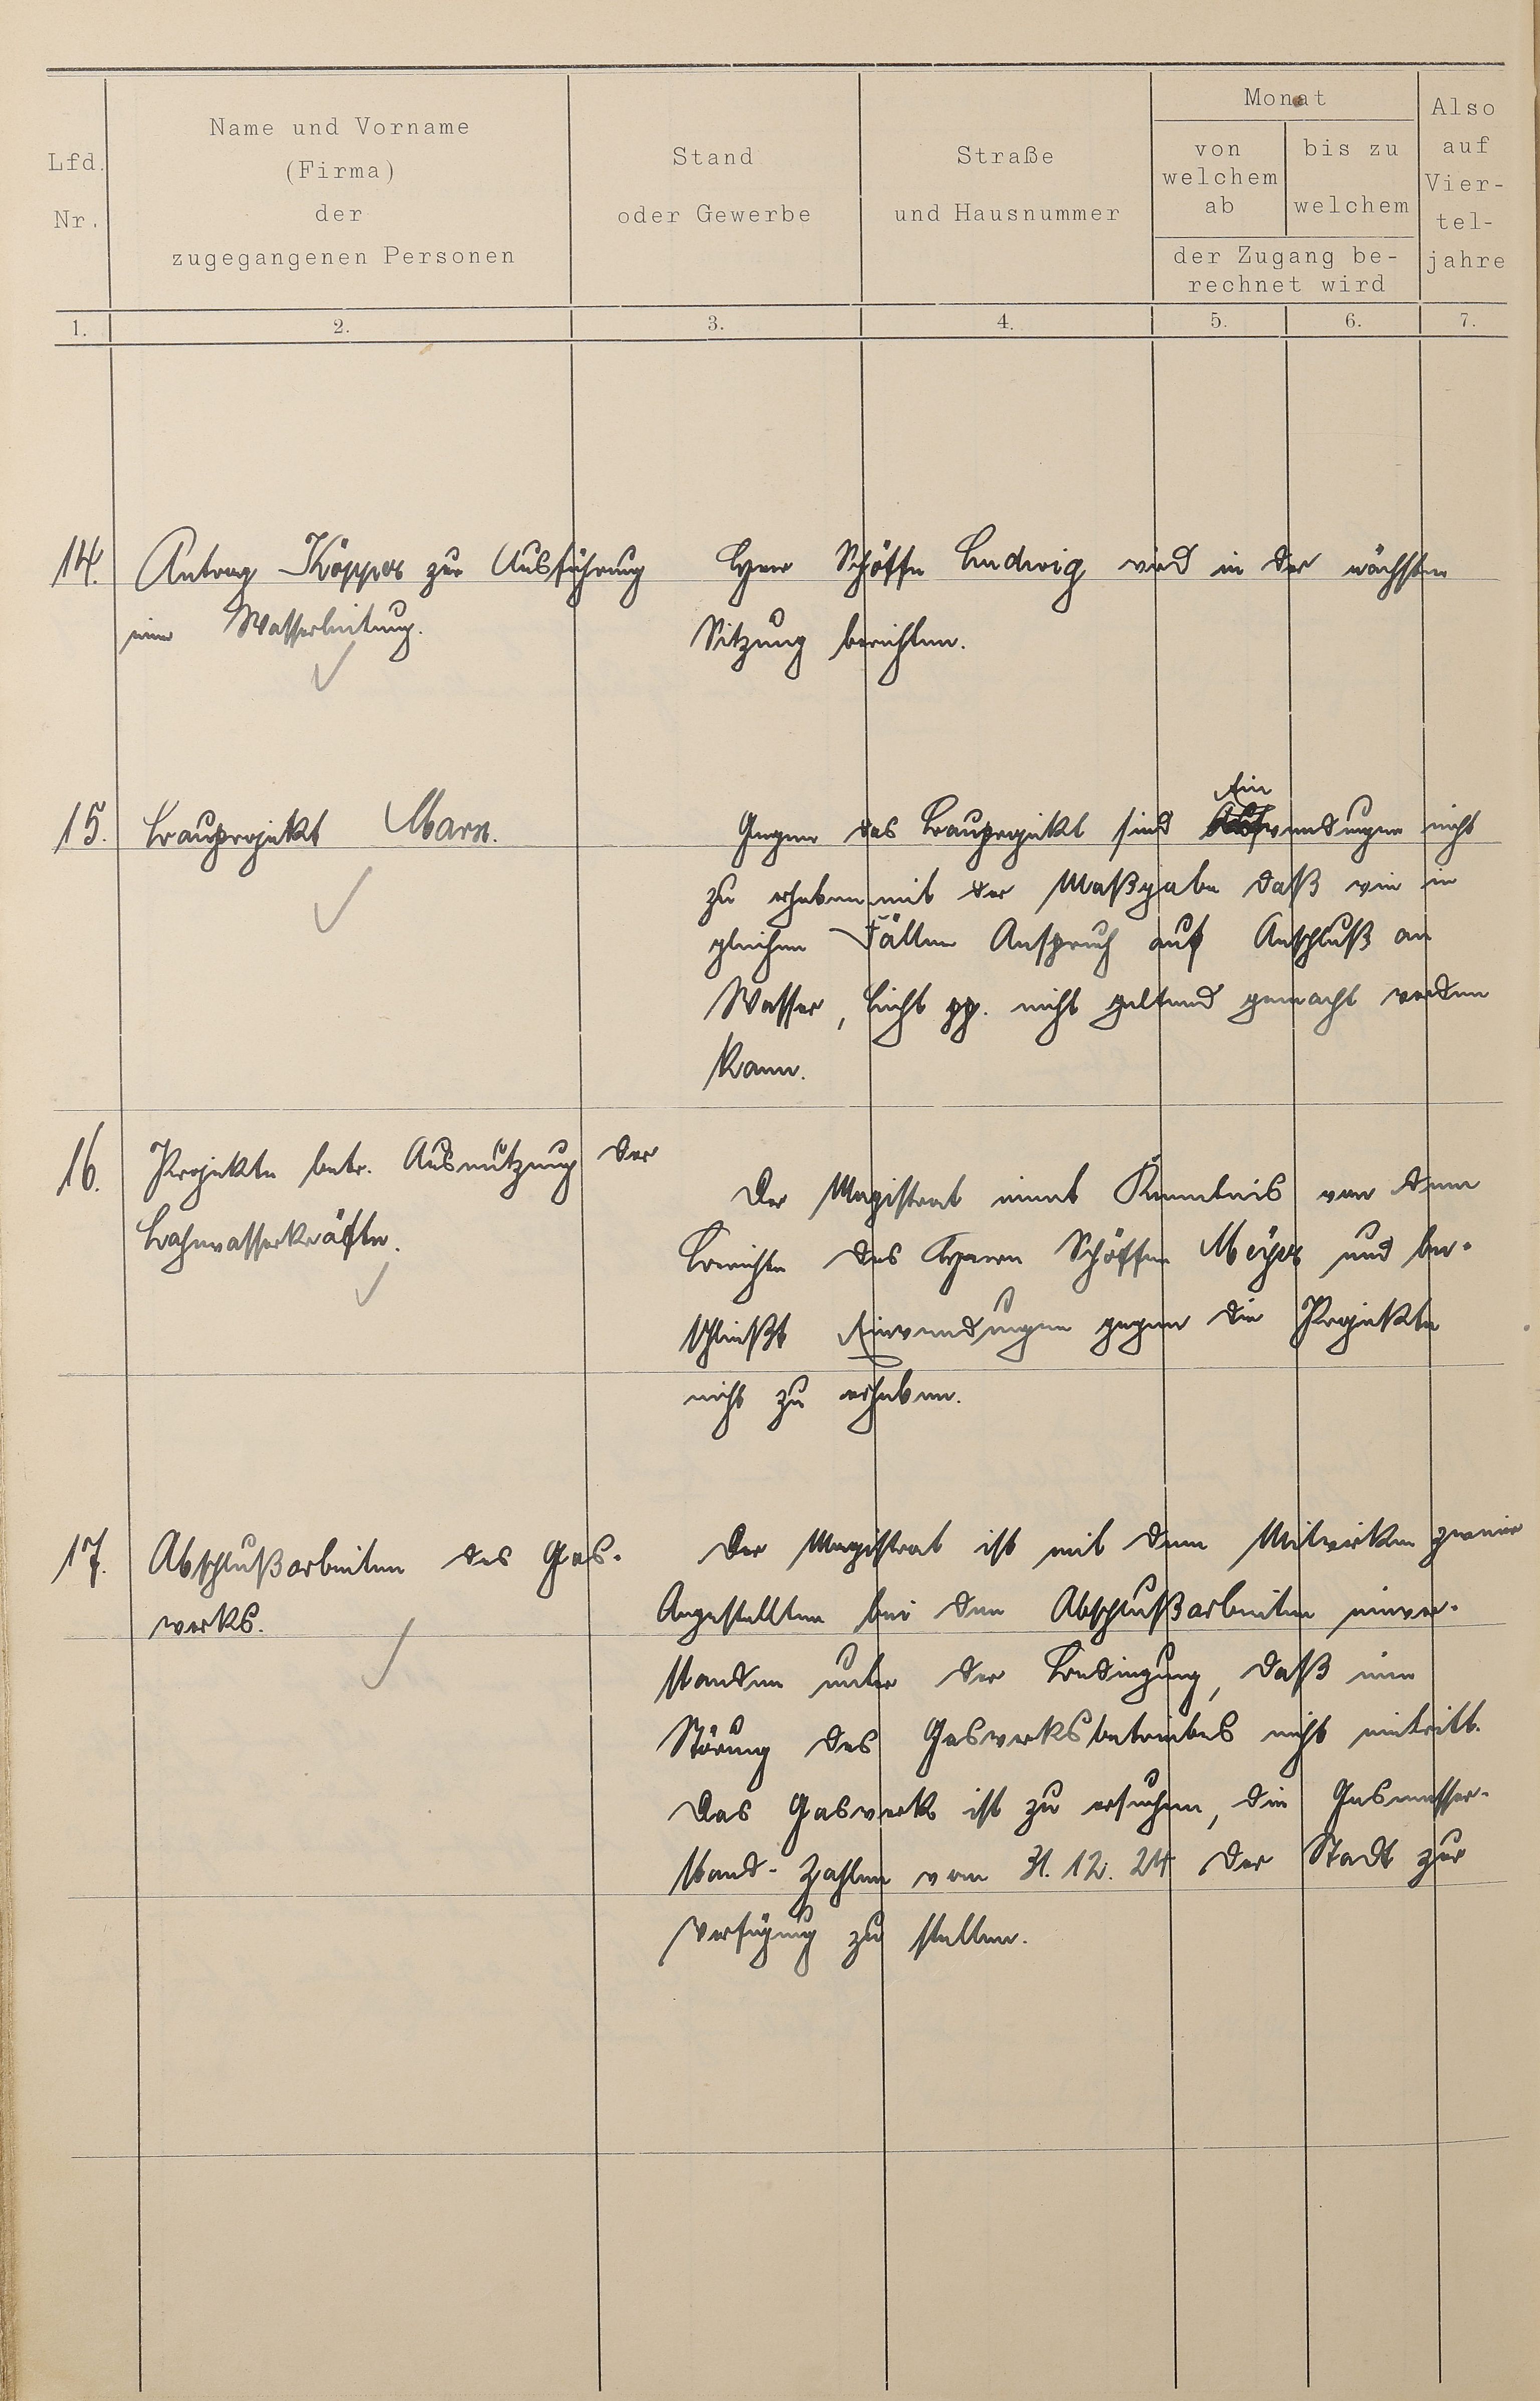 Lfd. Nr.
Name und Vorname
(Firma)
der
zugegangenen Personen
Stand
oder Gewerbe
Straße
und Hausnummer
Monat
von
welchem
ab
bis zu
welchem
der Zugang be-
rechnet wird
Also
auf
Vier-
tel-
jahre
1. 2. 3. 4. 5. 6. 7.
14. Antrag Köpper zur Ausführung
einer Wasserleitung.
Herr Schöffe Ludwig wird in der nächsten
Sitzung berichten.
15. Bauprojekt Marx.
Gegen das Bauprojekt sind Einwendungen nicht
zu erheben mit der Maßgabe daß wie in
gleichen Fällen Anspruch auf Anschluß an
Wasser, Licht pp. nicht geltend gemacht werden
kann.
16. Projekte betr. Ausnützung der
Lahnwasserkräfte.
Der Magistrat nimmt Kenntnis von dem
Berichte des Herrn Schöffen Meyer und be-
schließt Einwendungen gegen die Projekte
nicht zu erheben.
17. Abschlußarbeiten des Gas-
werks.
Der Magistrat ist mit dem Mitwirken zweier
Angestellten bei den Abschlußarbeiten einver-
standen unter der Bedingung, daß eine
Störung des Gaswerksbetriebes nicht eintritt.
Das Gaswerk ist zu ersuchen, die Gasmesser-
stand-Zahlen vom 31.12.24 der Stadt zur
Verfügung zu stellen.